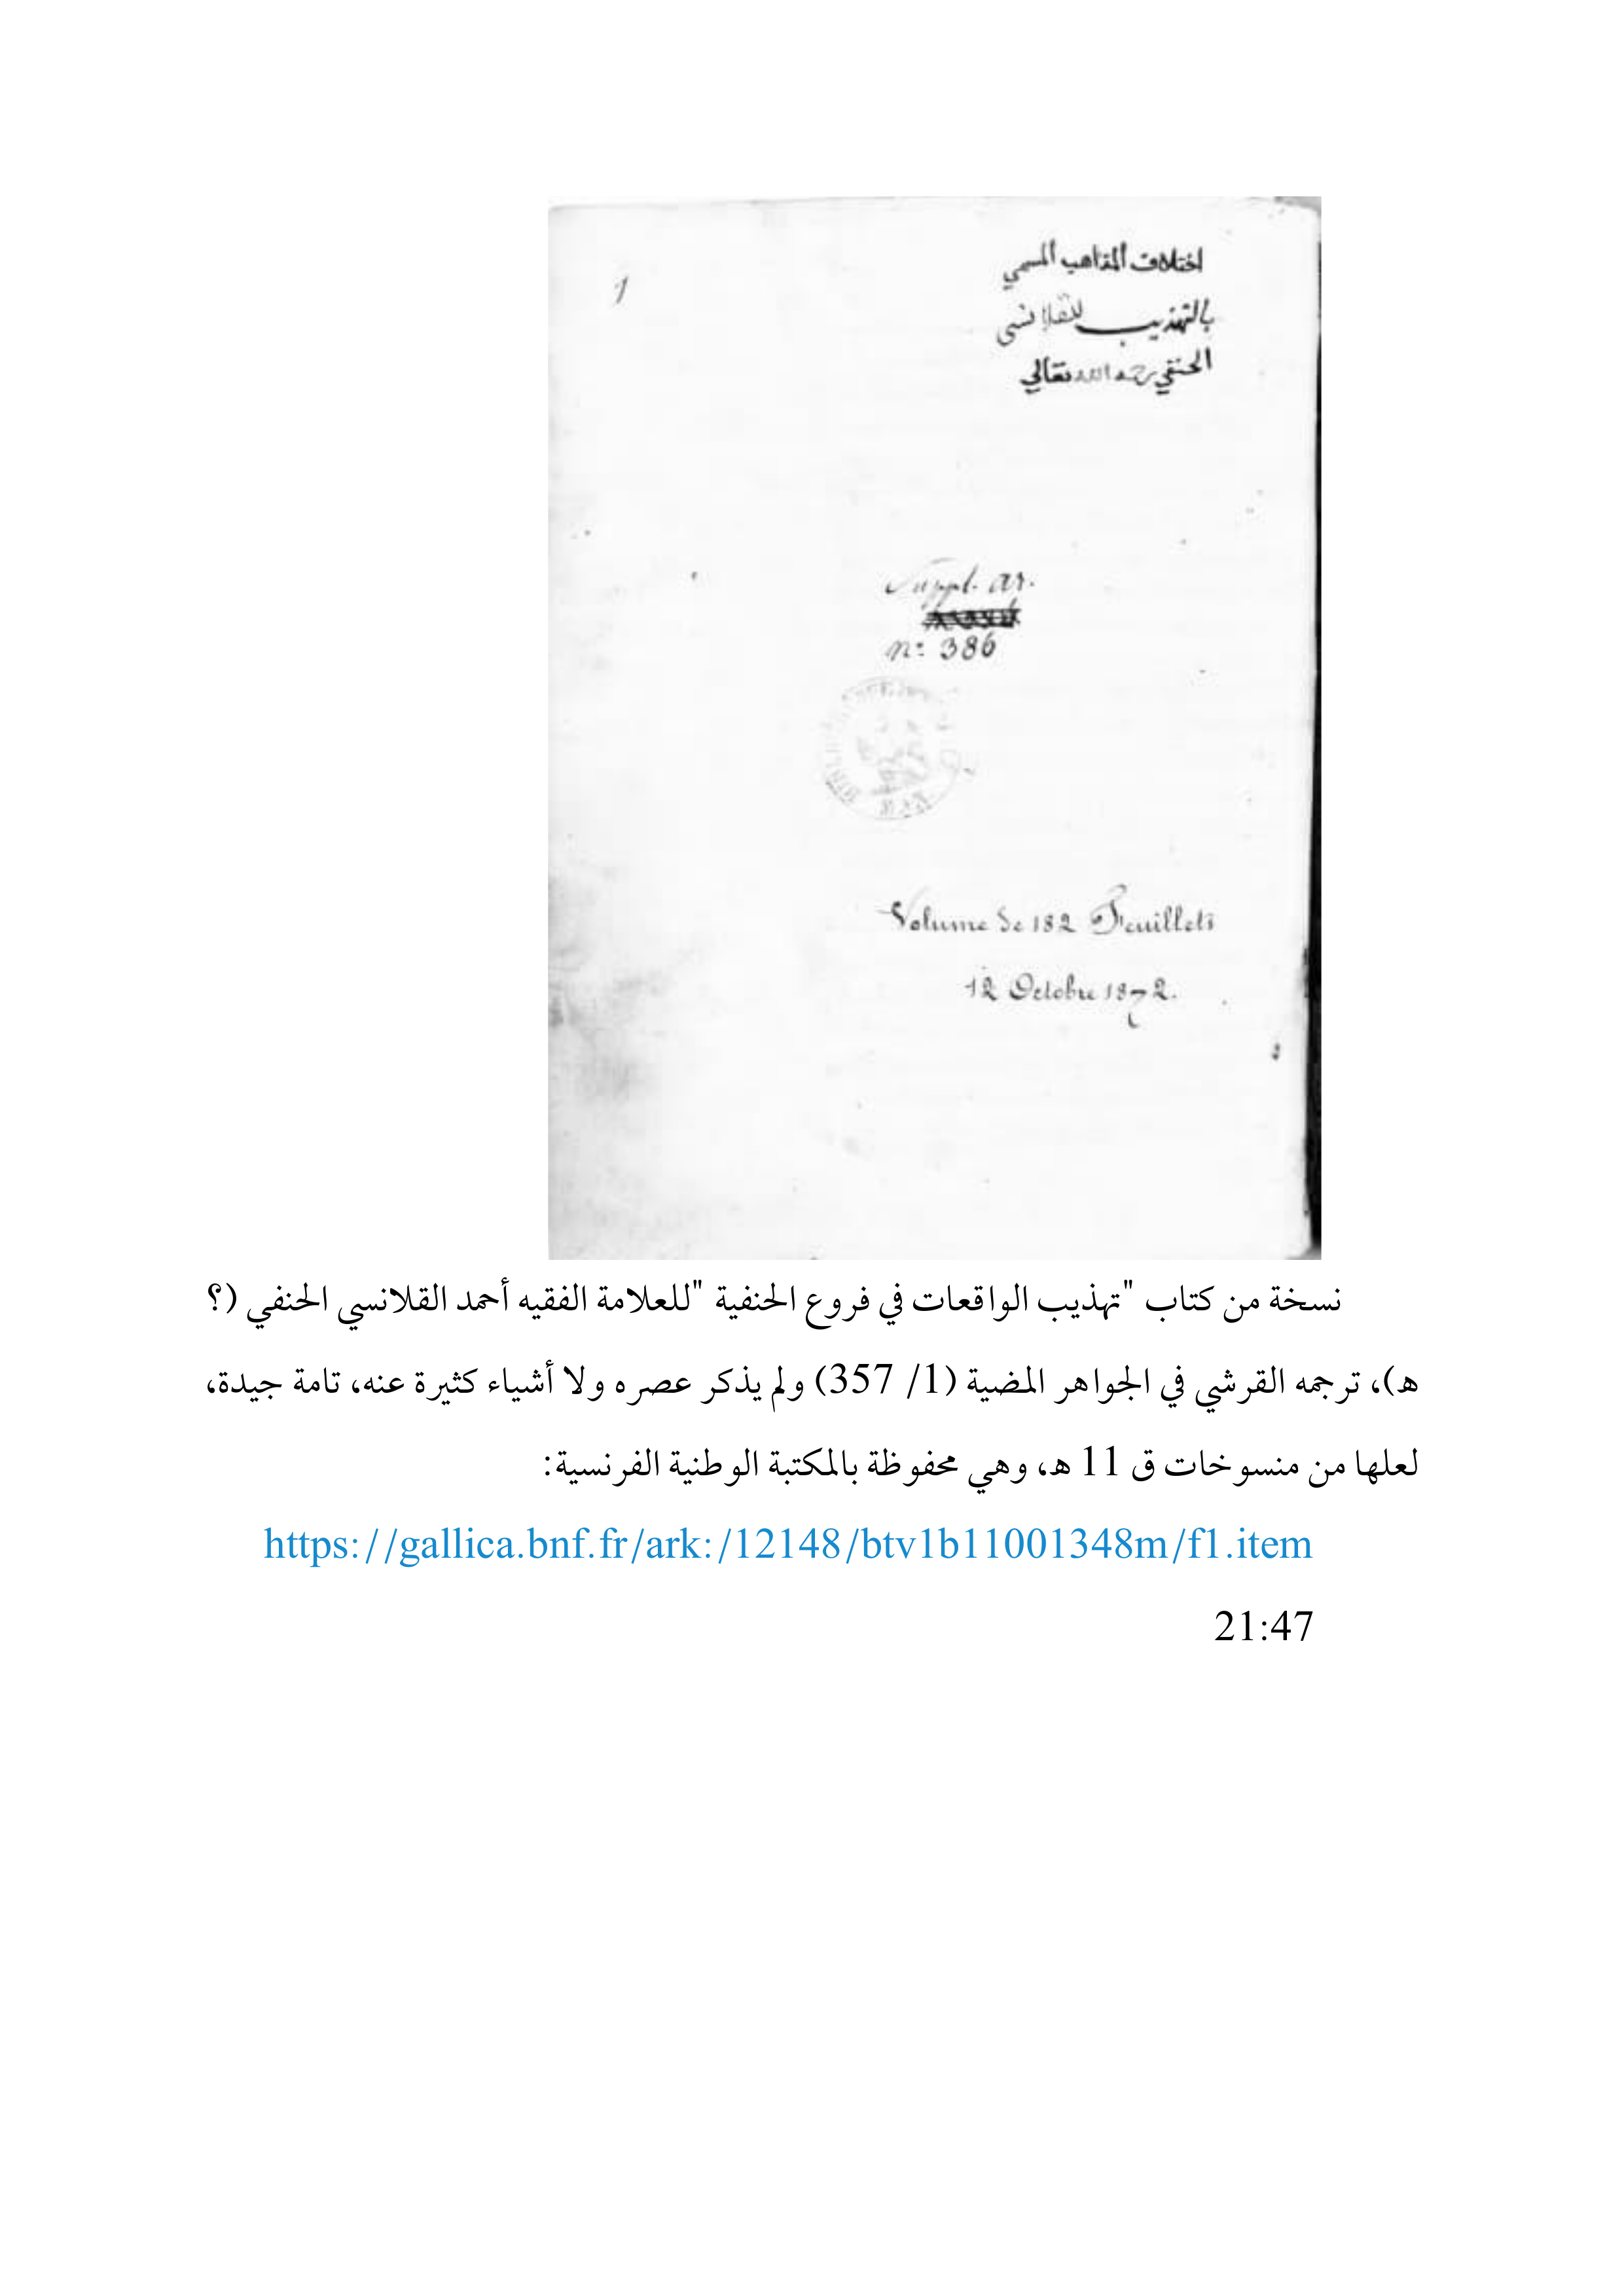 اختلاف المذاهب المسمي
1
بالتهذيب للقلانسي
الحنفي رحمه الله تعالي
Suppl. ar.
n: 386
Volume de 182 Feuillets
12 Octobre 1872.
نسخة من كتاب "تهذيب الواقعات في فروع الحنفية "للعلامة الفقيه أحمد القلانسي الحنفي (؟
هـ)، ترجمه القرشي في الجواهر المضية (1/ 357) ولم يذكر عصره ولا أشياء كثيرة عنه، تامة جيدة،
لعلها من منسوخات ق 11 هـ، وهي محفوظة بالمكتبة الوطنية الفرنسية:
https://gallica.bnf.fr/ark:/12148/btv1b11001348m/f1.item
21:47